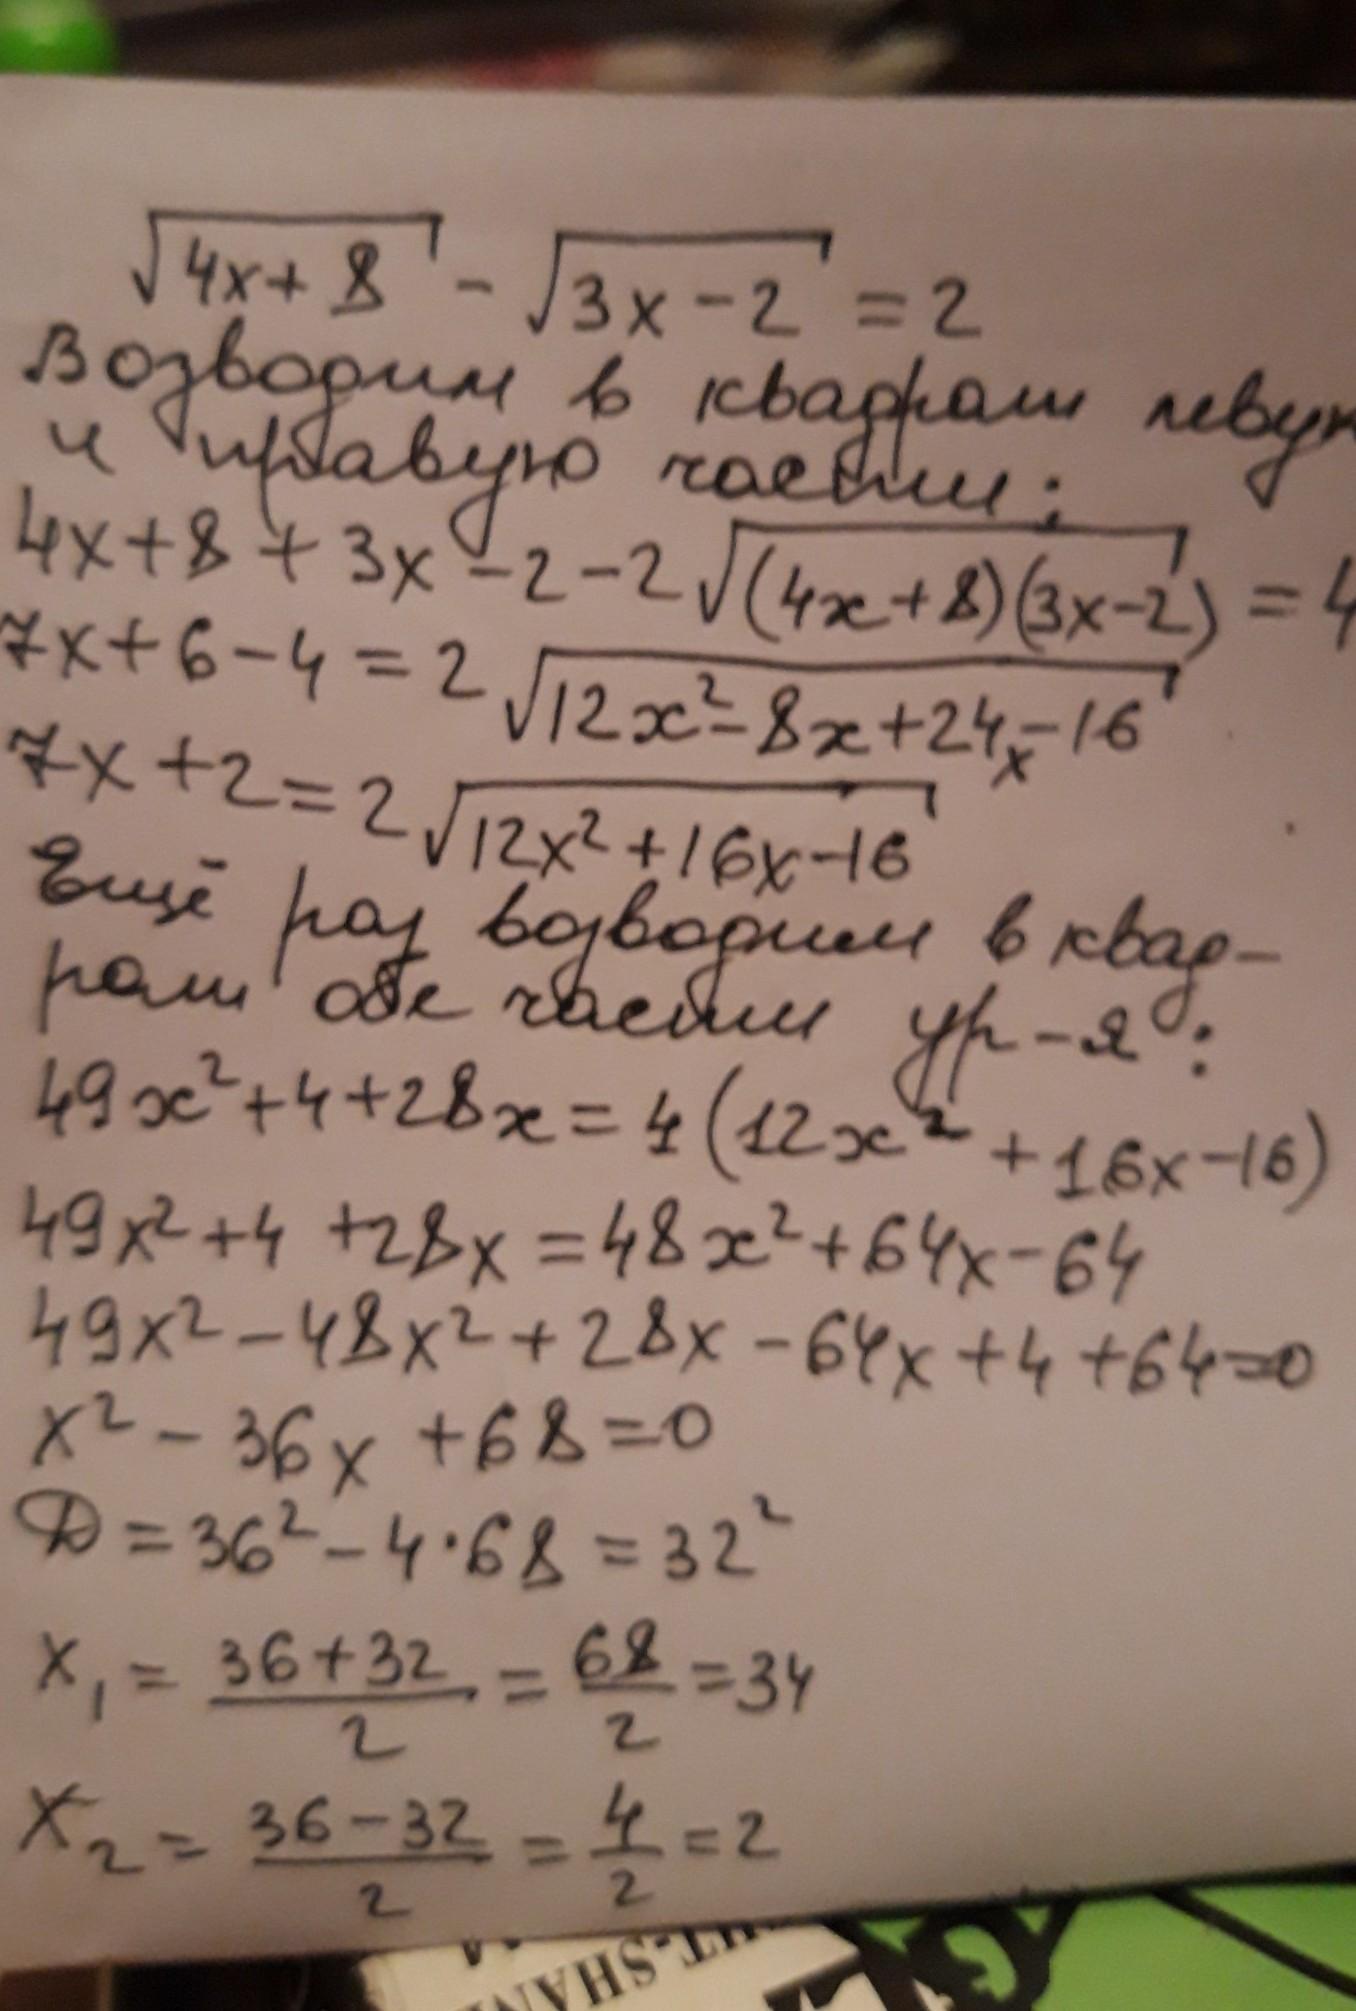 √(4x+8) - √(3x-2) = 2
Возводим в квадрат леву
и правую части:
4x+8+3x-2-2√((4x+8)(3x-2)) = 4
7x+6-4=2√(12x²-8x+24x-16)
7x+2=2√(12x²+16x-16)
Ещё раз возводим в квад-
рат обе части ур-я:
49x²+4+28x=4(12x²+16x-16)
49x²+4+28x=48x²+64x-64
49x²-48x²+28x-64x+4+64=0
x²-36x+68=0
D=36²-4·68=32²
x₁=(36+32)/2=68/2=34
x₂=(36-32)/2=4/2=2
HT-SHAN